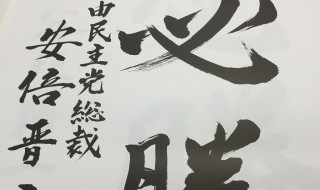 必勝
由民主党総裁
安倍晋